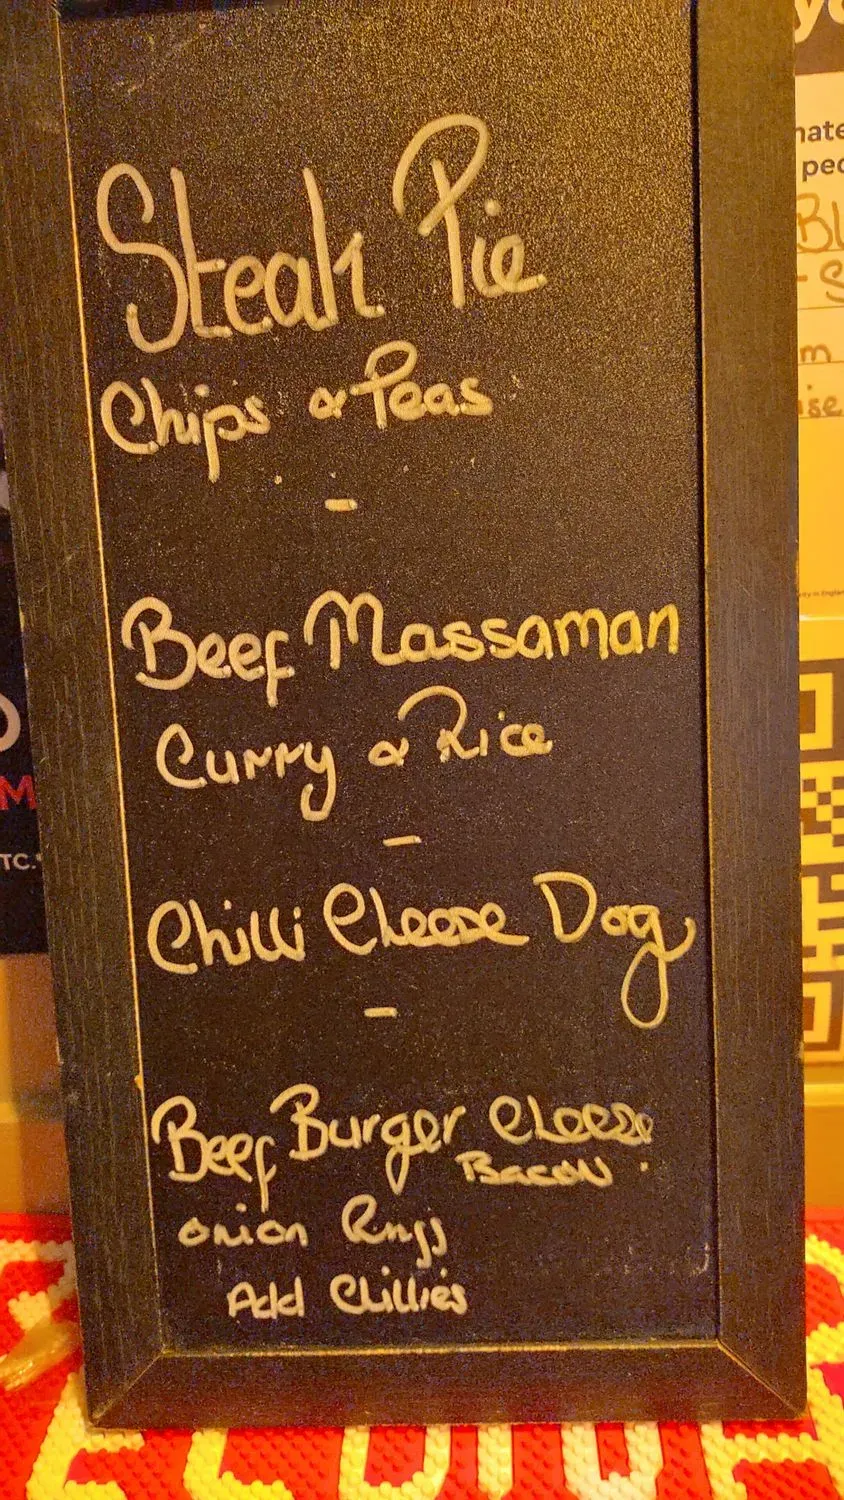 Steak Pie
Chips & Peas
-
Beef Massaman
Curry & Rice
-
Chilli Cheese Dog
-
Beef Burger Cheese
Bacon.
onion Rings
Add Chillies
TC.
M